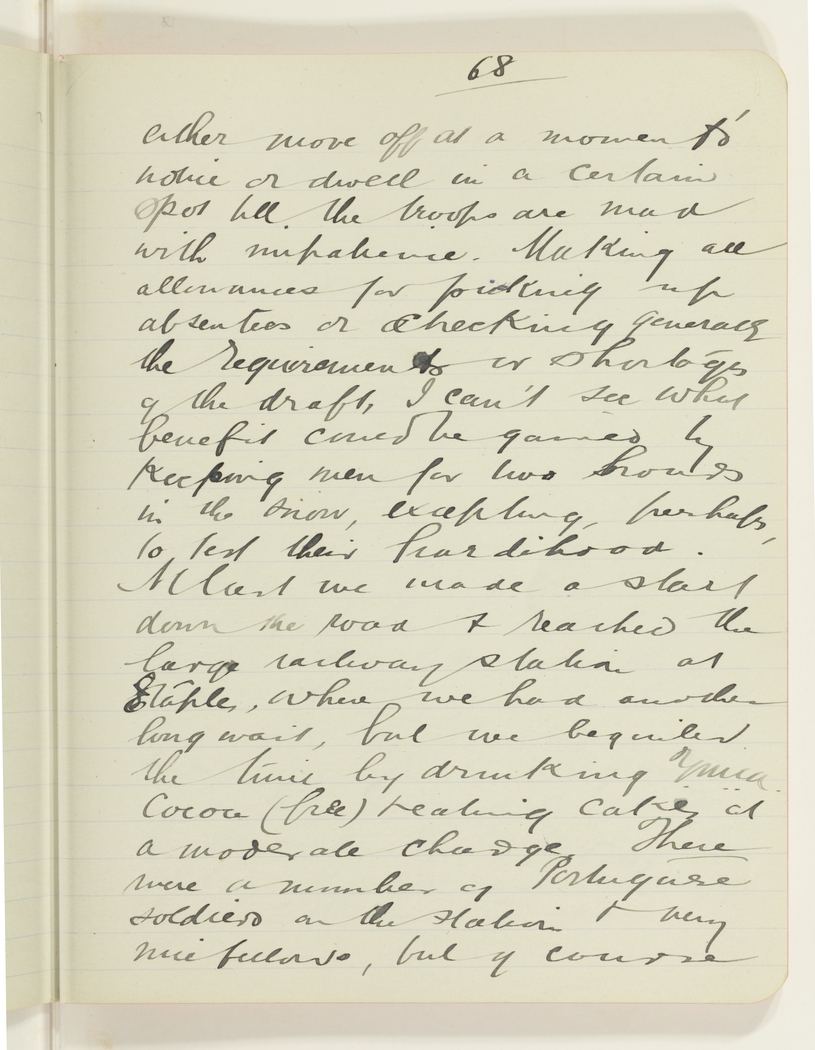 68
either move off at a moment's
notice or dwell in a certain
spot till the troops are mad
with impatience. Making all
allowances for picking up
absentees or checking generally
the requirements or shortages
of the draft, I can't see what
benefit could be gained by
keeping men for two hours
in the snow, excepting, perhaps,
to test their hardihood.
At last we made a start
down the road & reached the
large railway station at
Etaples, where we had another
long wait, but we beguiled
the time by drinking Y.M.C.A.
Cocoa (free) & eating cakes at
a moderate charge. There
were a number of Portuguese
soldiers on the station & very
nice fellows, but of course